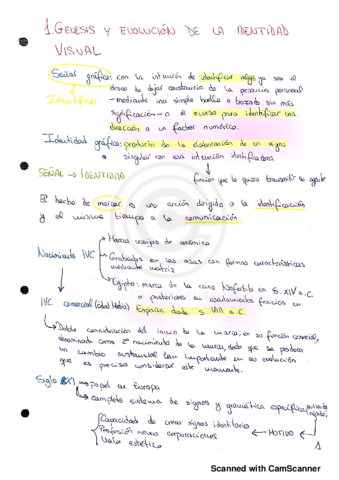 1. GENESIS Y EVOLUCIÓN DE LA IDENTIDAD
VISUAL
Señal gráfica: con la intención de identificar algo, ya sea el
deseo de dejar constancia de la presencia personal
Identificar
- mediante una simple huella o trazado sin más
significación - o el curso para identificar una
dirección o un factor numérico.
Identidad gráfica: producto de la elaboración de un signo
singular con esa intención identificadora
función que le quiera transmitir su agente
SEÑAL → IDENTIDAD
El hecho de marcar es una acción dirigida a la identificación
y al mismo tiempo a la comunicación
Nacimiento IVC
Marcas vasijas de cerámica
Grabados en las asas con formas características
mediante matriz
Egipto: marca de la reina Nefertiti en S. XIV a.C.
o posteriores en asentamientos fenicios en
España desde s. VIII a.C.
IVC comercial (Edad Media)
Doble consideración del inicio de la marca, en su función comercial,
denominada como 2º nacimiento de la marca, dado que se produce
un cambio sustancial tan importante en su evolución
que es preciso considerar este momento.
Siglo XI → papel en Europa
→ completo sistema de signos y gramática específica
Capacidad de crear signos identitarios
Profusión nuevas corporaciones ← MOTIVO
Valor estético
Scanned with CamScanner